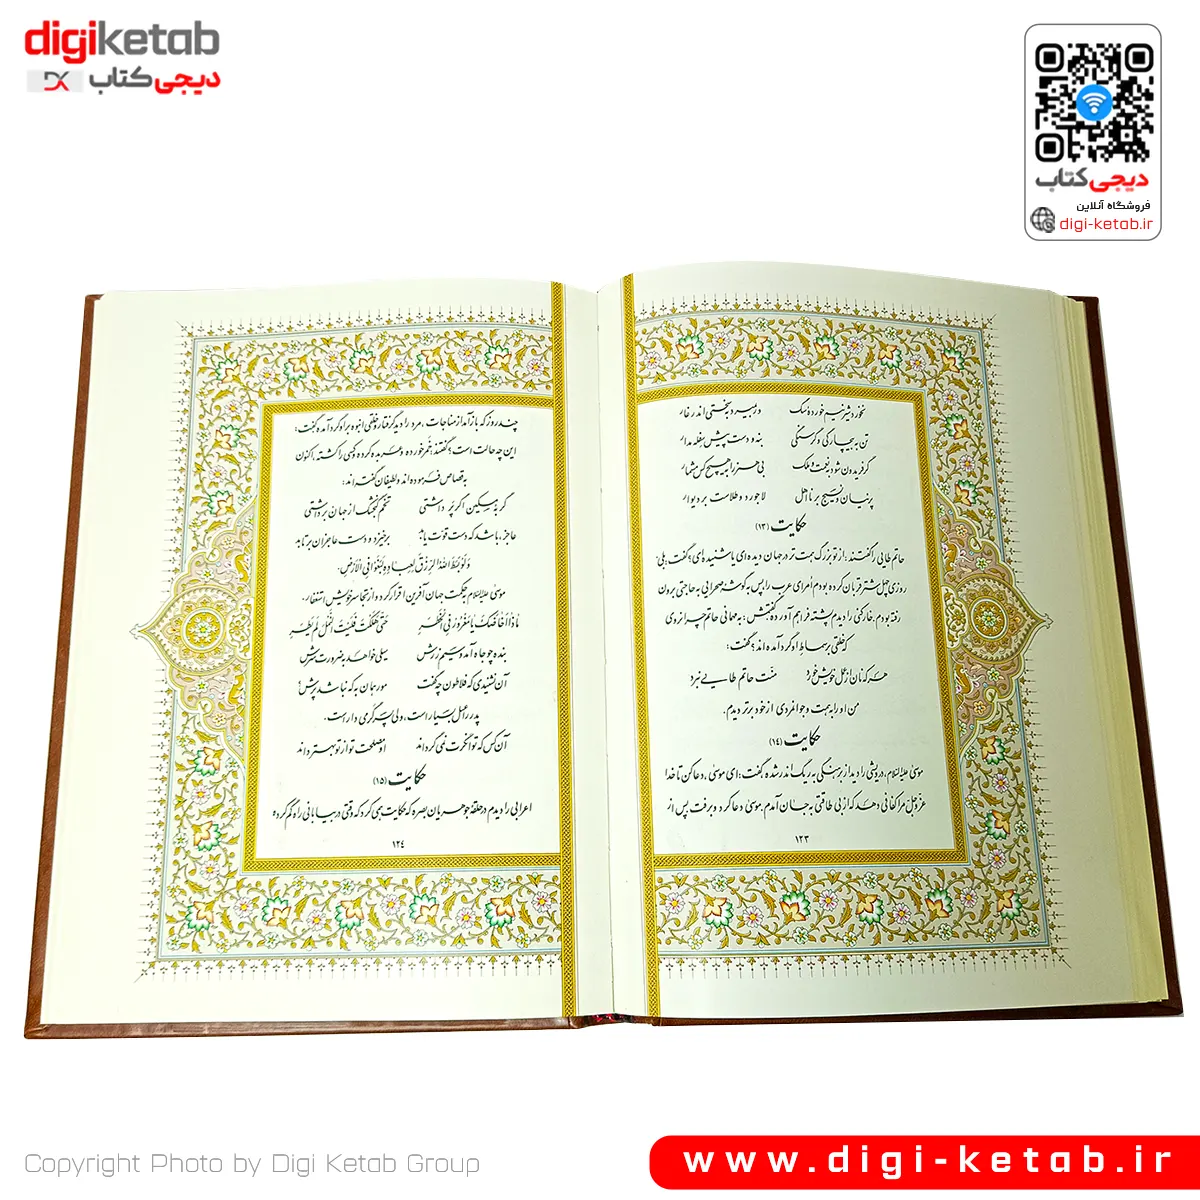 digiketab
دیجی‌کتاب
دیجی‌کتاب
فروشگاه آنلاین
digi-ketab.ir
نخورد شیر نیم خوردهٔ سگ ور بمیرد بسختی اندر غار
تن به بیچارگی و گرسنگی بنه و دست پیش سفله مدار
گر فریدون شود بنعمت و ملک بی هنر را به هیچ کس مشمار
پرنیان و نسیج بر نااهل لاجورد و طلاست بر دیوار
حکایت (۱۳)
حاتم طائی را گفتند : از تو بزرگ همت تر در جهان دیده ای یا شنیده ای؟ گفت: بلی؛
روزی چهل شتر قربان کرده بودم اُمرای عرب را پس به گوشهٔ صحرایی به حاجتی برون
رفته بودم، خارکنی را دیدم پشته فراهم آورده گفتمش: به مهمانی حاتم چرا نروی
که خلقی بر سماط او گرد آمده اند؟ گفت:
هر که نان از عمل خویش خورد منّت حاتم طایی نبرد
من او را به همت و جوانمردی از خود برتر دیدم.
حکایت (۱۴)
موسیٰ علیه‌السلام، درویشی را دید از برهنگی به ریگ اندر شده گفت: ای موسیٰ، دعا کن تا خدا
عزوجل مرا کفافی دهد که از بی طاقتی به جان آمدم. موسیٰ دعا کرد و برفت پس از
۱۲۳
چند روز که باز آمد از مناجات، مرد را دید گرفتار و خلقی انبوه برو گرد آمده گفت:
این چه حالت است؟ گفتند: خَمر خورده و عربده کرده و کسی را کشته، اکنون
به قصاص فرموده اند و لطیفان گفته اند:
گربهٔ مسکین اگر پَر داشتی تخم گنجشک از جهان برداشتی
عاجز باشد که دست قوت یابد برخیزد و دست عاجزان برتابد
وَ لَوْ بَسَطَ اللهُ الرِّزْقَ لِعِبادِهِ لَبَغَوْا فِی الْاَرْضِ.
موسیٰ علیه‌السلام به حکمت جهان آفرین اقرار کرد و از تجاسر خویش استغفار.
ماذا أخاضَکَ یا مَغْرورُ فِی الْخَطَرِ حَتّیٰ هَلَکْتَ فَلَیْتَ النَّمْلَ لَمْ یَطِرِ
بنده چو جاه آمد و سیم و زرش سیلی خواهد به ضرورت سرش
آن نشنیدی که فلاطون چه گفت مور همان به که نباشد پرش؟
پدر را عسل بسیار است، ولی پسر گرمی دار است.
آن کس که توانگرت نمی گرداند او مصلحت تو از تو بهتر داند
حکایت (۱۵)
اعرابی را دیدم در حلقهٔ جوهریان بصره که حکایت همی کرد که وقتی در بیابانی راه گم کرده
۱۲۴
Copyright Photo by Digi Ketab Group
www.digi-ketab.ir